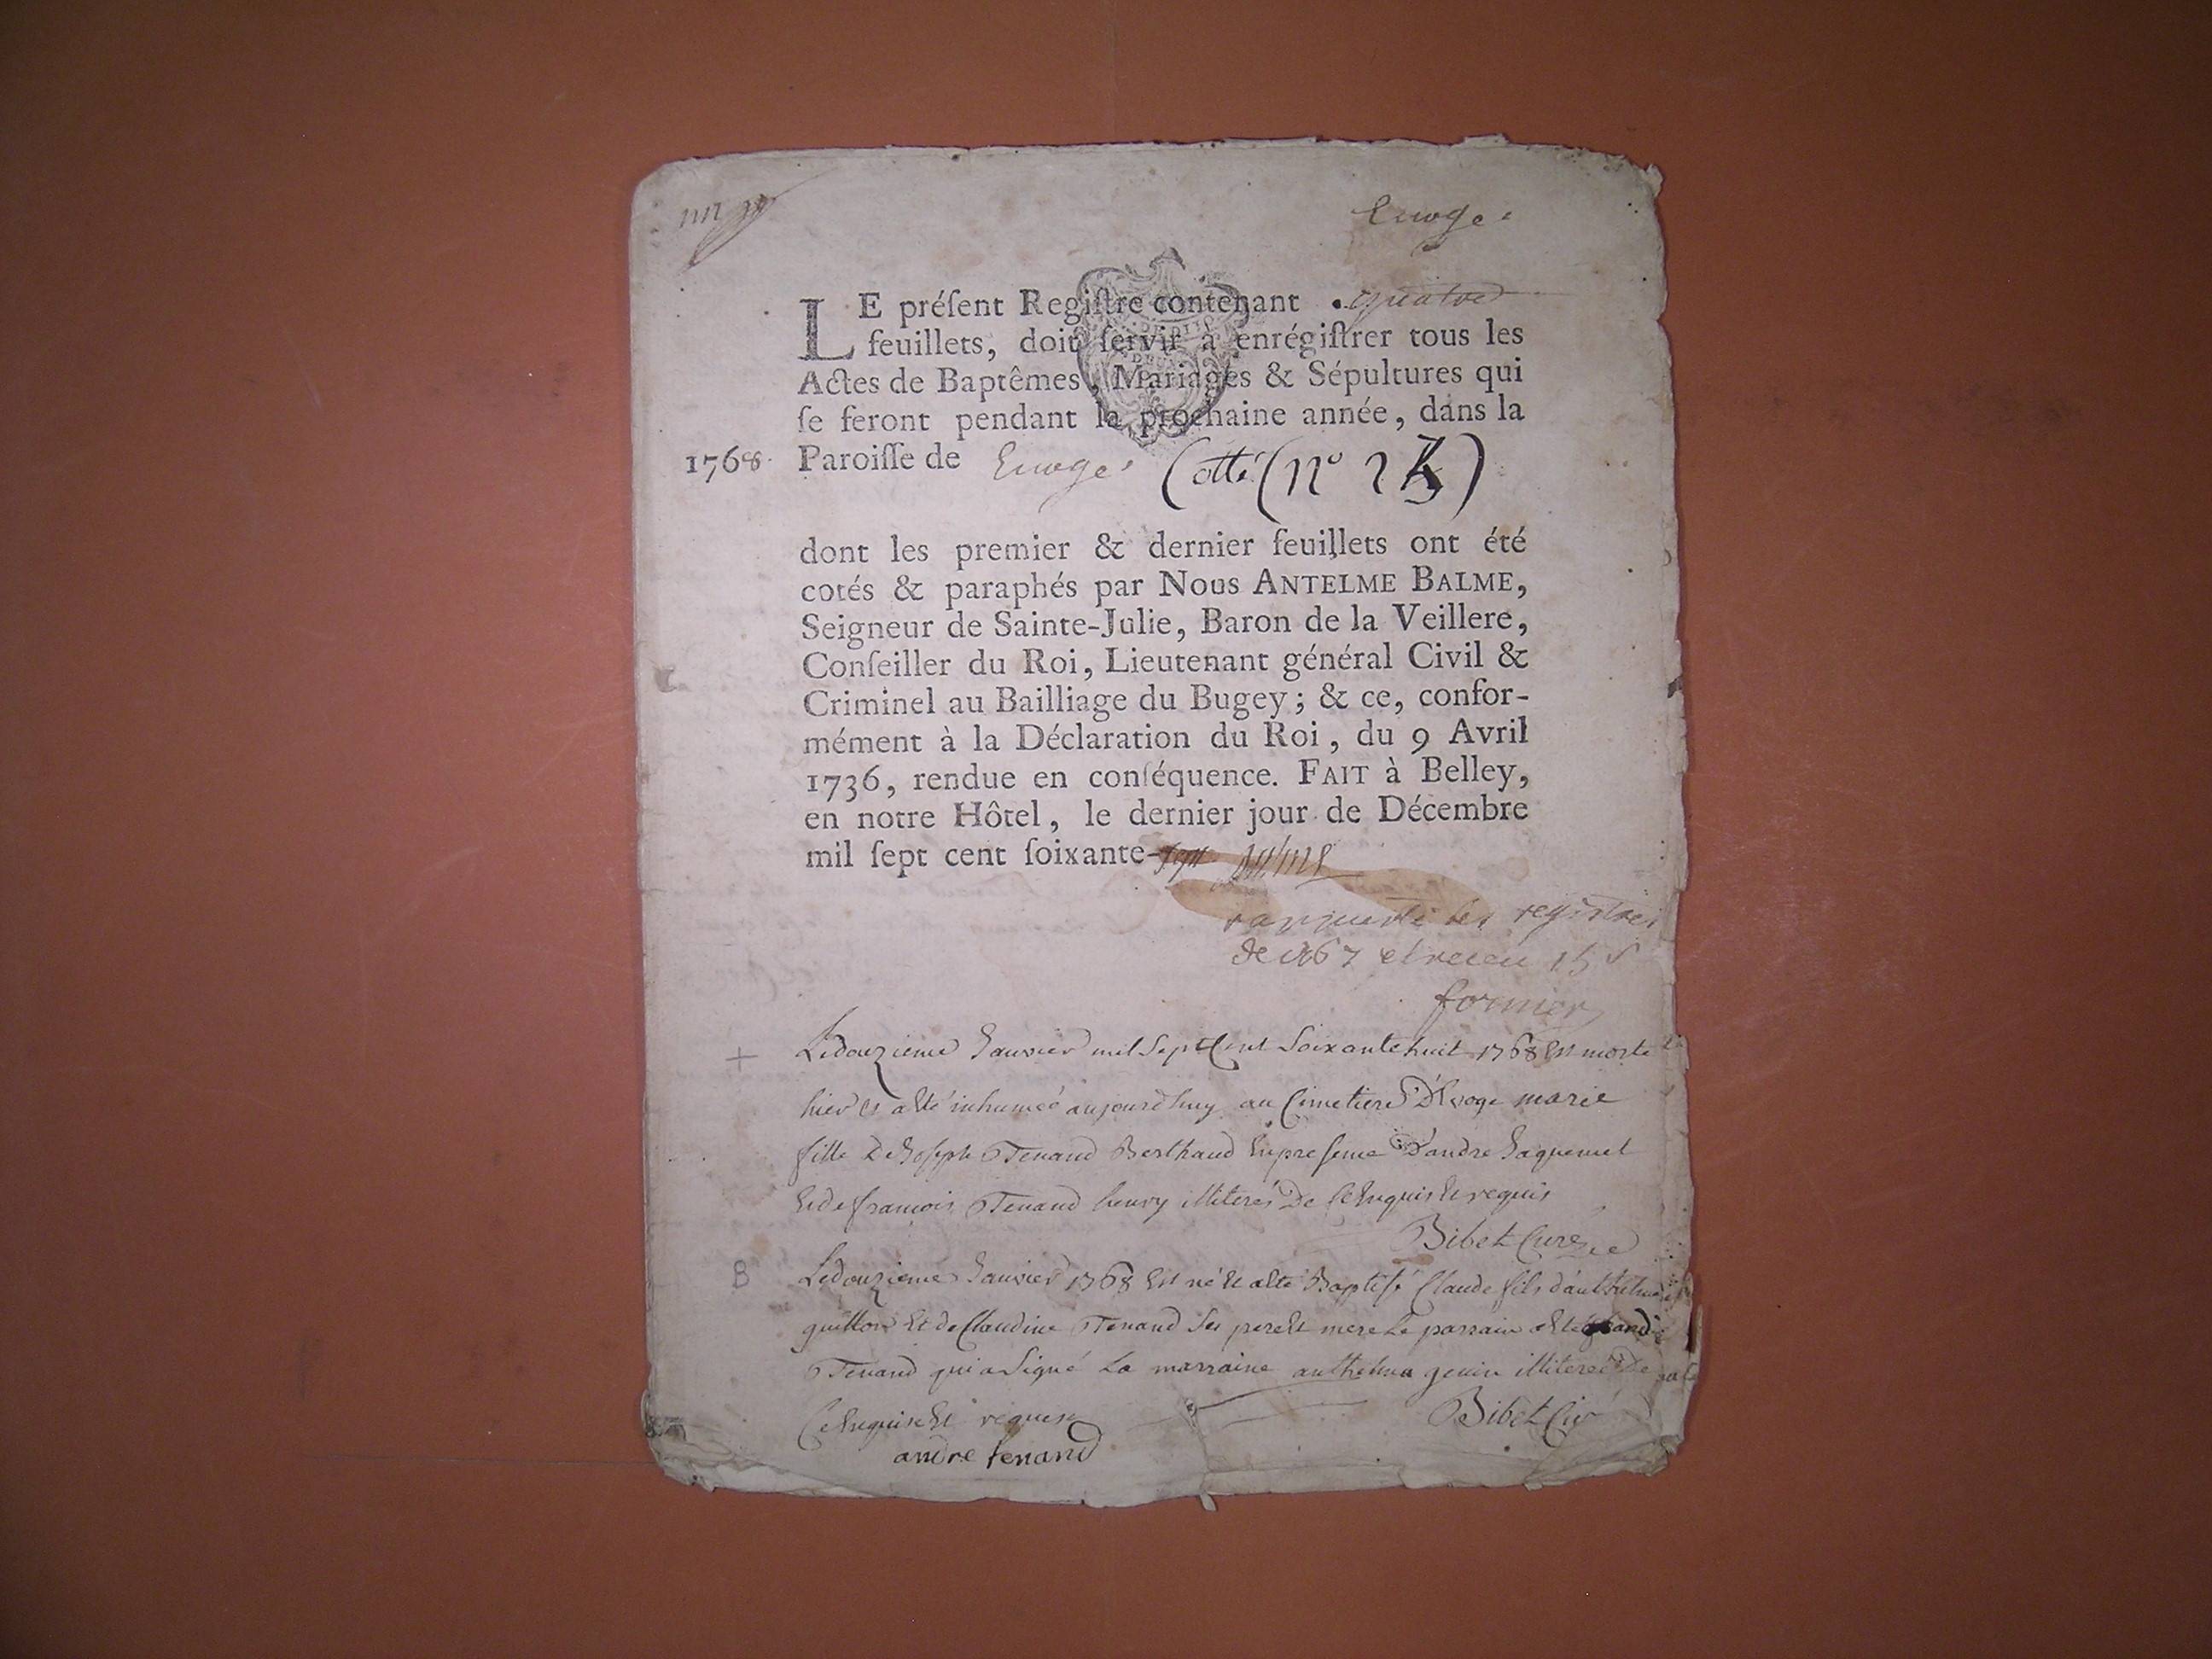 Evoge
LE préſent Regiſtre contenant quatre
feuillets, doit ſervir à enrégiſtrer tous les
Actes de Baptêmes, Mariages & Sépultures qui
ſe feront pendant la prochaine année, dans la
1768. Paroiſſe de Evoge Cotté (n° 25)
dont les premier & dernier feuillets ont été
cotés & paraphés par Nous ANTELME BALME,
Seigneur de Sainte-Julie, Baron de la Veillere,
Conſeiller du Roi, Lieutenant général Civil &
Criminel au Bailliage du Bugey; & ce, confor-
mément à la Déclaration du Roi, du 9 Avril
1736, rendue en conſéquence. FAIT à Belley,
en notre Hôtel, le dernier jour de Décembre
mil ſept cent ſoixante-sept
les registres
de 1767 et receu 15 s
fornier
+ Ledouzieme Janvier mil Sept Cent Soixante huit 1768 Est morte
hier et a Eté inhumée aujourdhuy au Cimetiere D'Evoge marie
fille De Joseph Tenand Berthaud En presence D'andre Jaquemet
Et de francois Tenand henry illiterés De Ce Enquis Et requis
Bibet Curé
B Ledouzieme Janvier 1768 Est né Et a Eté Baptisé Claude fils d'anthelme
guillon Et de Claudine Tenand Ses pere Et mere Le parrain a Eté andre
Tenand qui a Signé La marraine anthelma genin illiterée De
Ce Enquise Et requise Bibet Curé
andre tenand